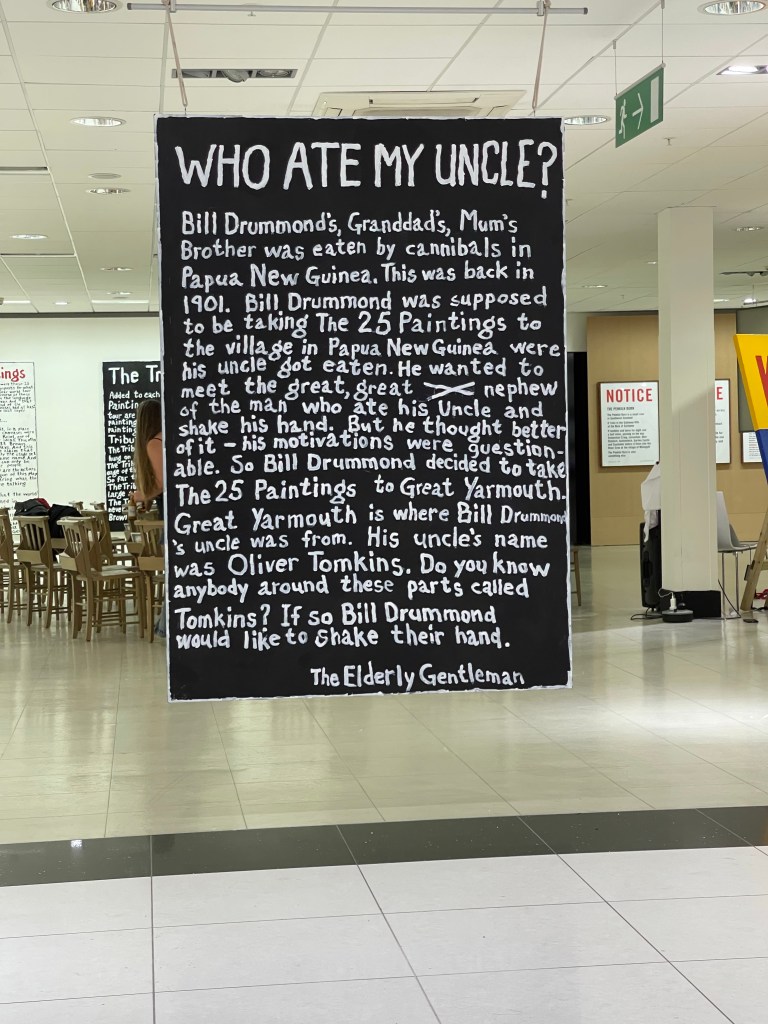 WHO ATE MY UNCLE?
Bill Drummond's, Granddad's, Mum's
Brother was eaten by cannibals in
Papua New Guinea. This was back in
1901. Bill Drummond was supposed
to be taking The 25 Paintings to
the village in Papua New Guinea were
his uncle got eaten. He wanted to
meet the great, great nephew
of the man who ate his Uncle and
shake his hand. But he thought better
of it – his motivations were question-
able. So Bill Drummond decided to take
The 25 Paintings to Great Yarmouth.
Great Yarmouth is where Bill Drummond
's uncle was from. His uncle's name
was Oliver Tomkins. Do you know
anybody around these parts called
Tomkins? If so Bill Drummond
would like to shake their hand.
The Elderly Gentleman
ings
The Tr
Added to each
Painting
tour are
painting
painting
Tribu
The Trib
hung on
The Trib
So far
The Tri
large
The
never
Brow
NOTICE
E